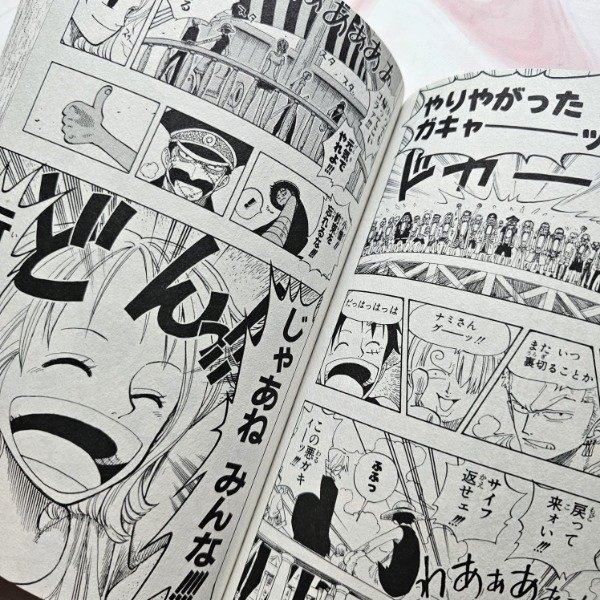 やりやがった
ガキャーーーッ
ドカー
また いつ
裏切ることか
ナミさん
グーッ!!
だっはっはっは
戻って
来ォい!!!
サイフ
返せェ!!!
ふふっ
この悪ガキ
ッ!!!
わあぁぁぁ
元気で
やれよ!!!
約束を
忘れるな!!!
じゃあね みんな!!!!
どん